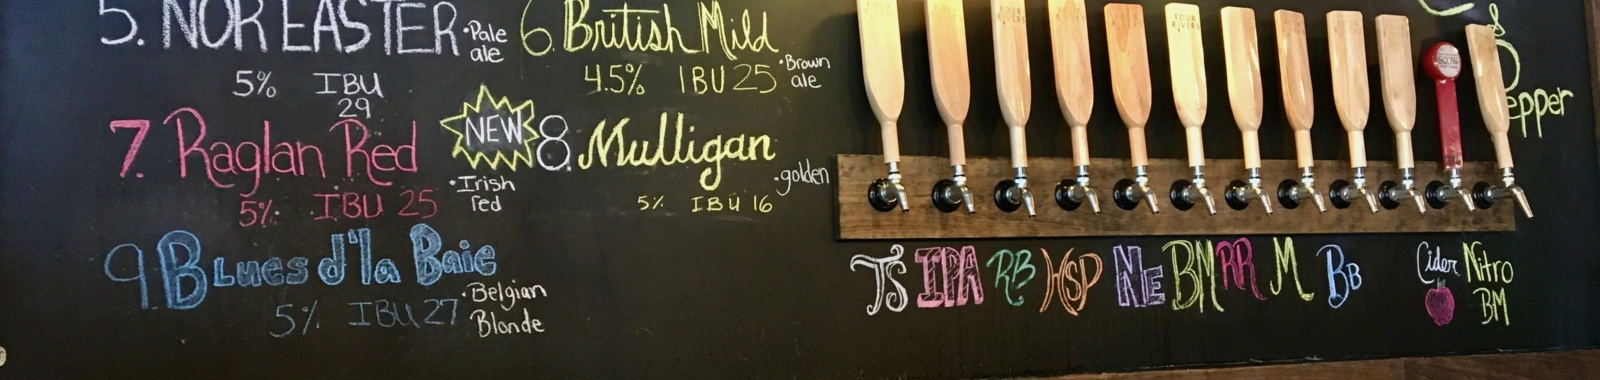 5. NOR'EASTER
•Pale
ale
5% IBU
29
6. British Mild
•Brown
ale
4.5% IBU 25
7. Raglan Red
•Irish
red
5% IBU 25
NEW
8. Mulligan
•golden
5% IBU 16
9. Blues d'la Baie
•Belgian
Blonde
5% IBU 27
FOUR
RIVERS
&
epper
TS IPA RB HSP NE BM RR M BB Cider Nitro
BM